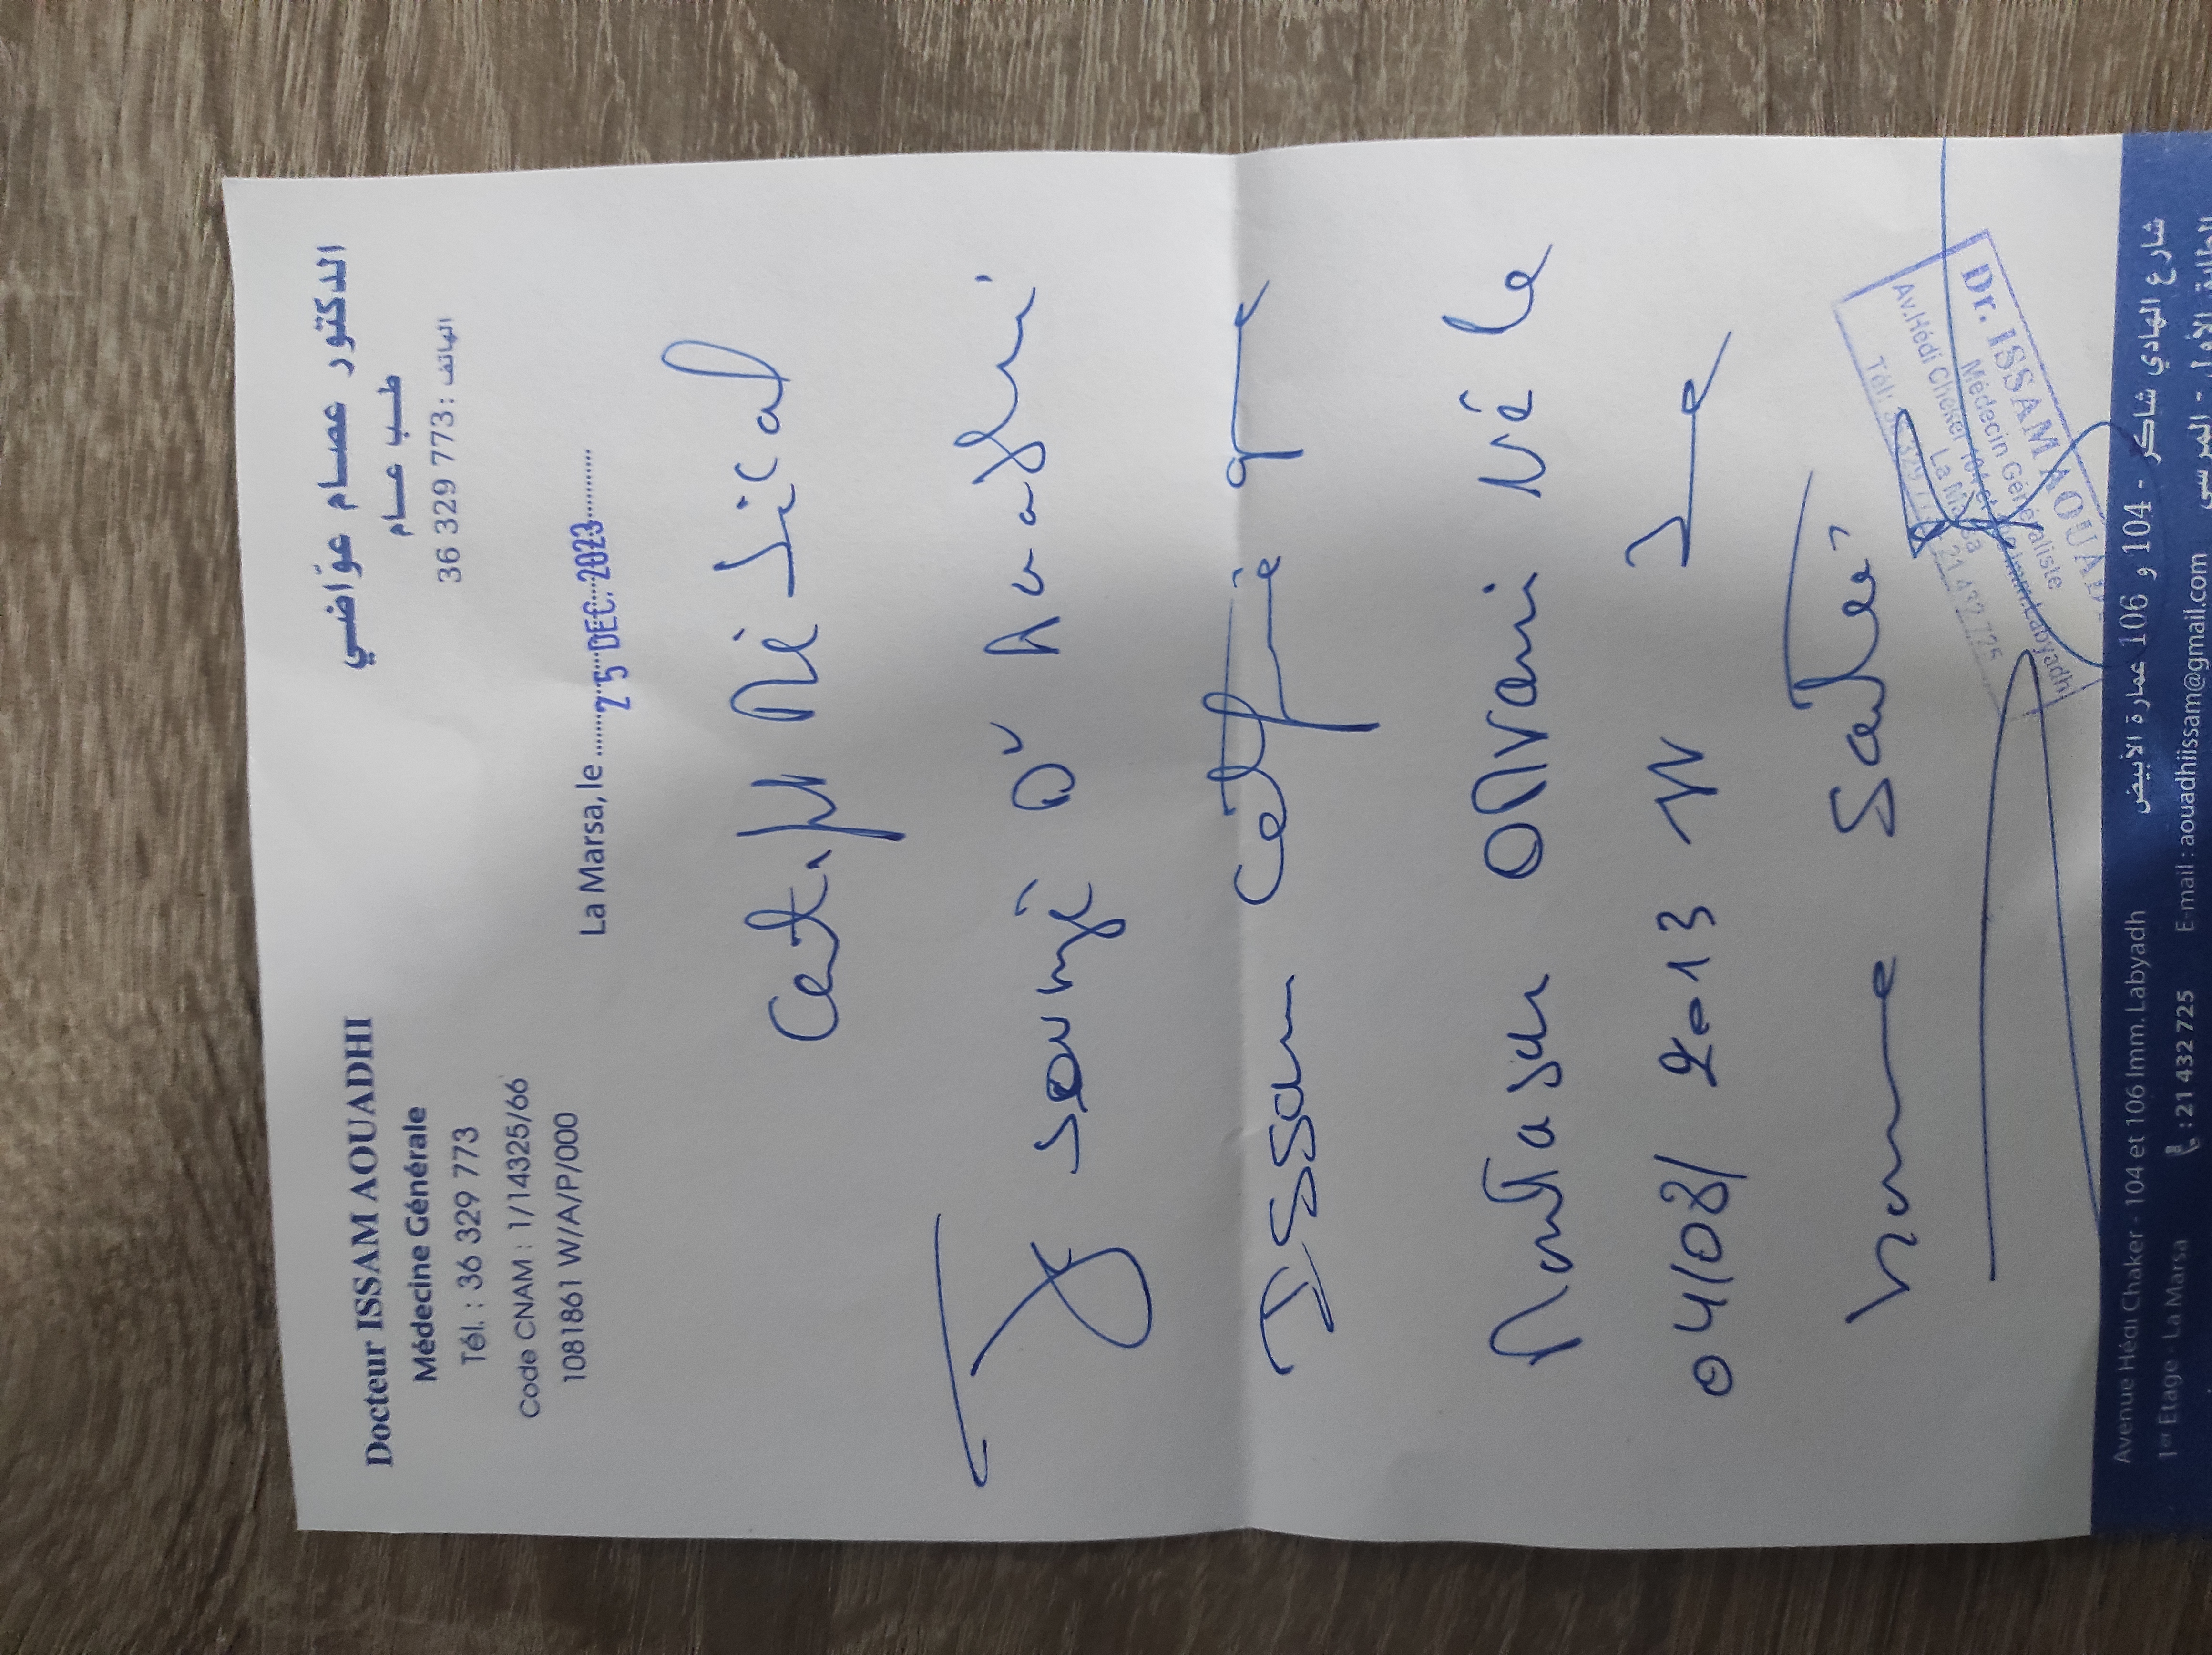 Docteur ISSAM AOUADHI
Médecine Générale
Tél. : 36 329 773
Code CNAM : 1/14325/66
1081861 W/A/P/000
الدكتور عصام عوّاضي
طب عام
الهاتف : 36 329 773
La Marsa, le 25 DEC. 2023
Médical
Je Dr Aouadhi
Issam certifie que
Né le
04/08/2013
bonne Santé
Dr. ISSAM AOUADHI
Médecin Généraliste
Av. Hédi Cheker 104 et 106 Imm. Labyadh
La Marsa
Tél: 36 329 773 21 432 725
Avenue Hédi Chaker - 104 et 106 Imm. Labyadh
شارع الهادي شاكر - 104 و 106 عمارة الأبيض
1er Etage - La Marsa
الطابق الأول - المرسى
: 21 432 725
E-mail : aouadhiissam@gmail.com